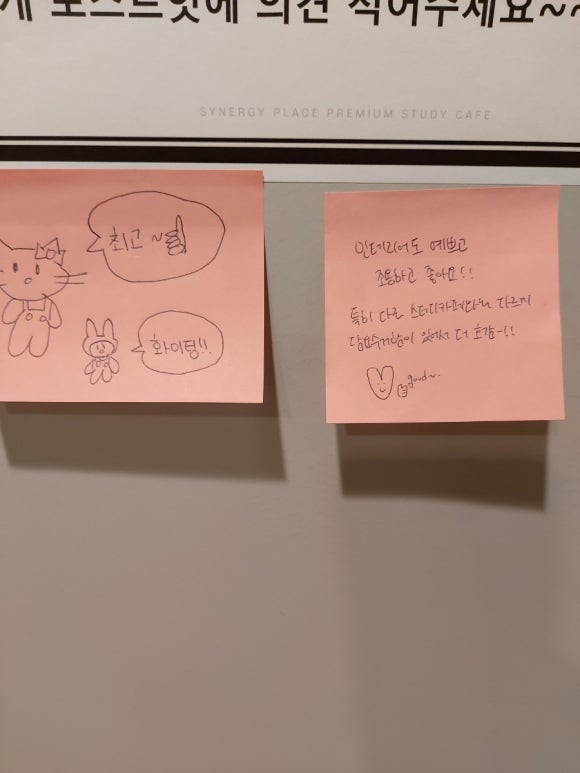 게 포스트잇에 의견 적어주세요~~
SYNERGY PLACE PREMIUM STUDY CAFE
최고~
화이팅!!
인테리어도 예쁘고
조용하고 좋아요!!
특히 다른 스터디카페와는 다르게
담요수거함이 있어서 더 호감~!!
good~